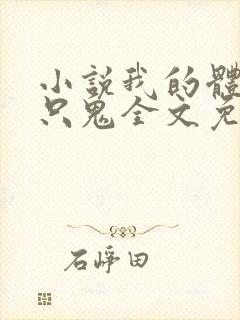 小説我的體
只鬼全文免
石崢田